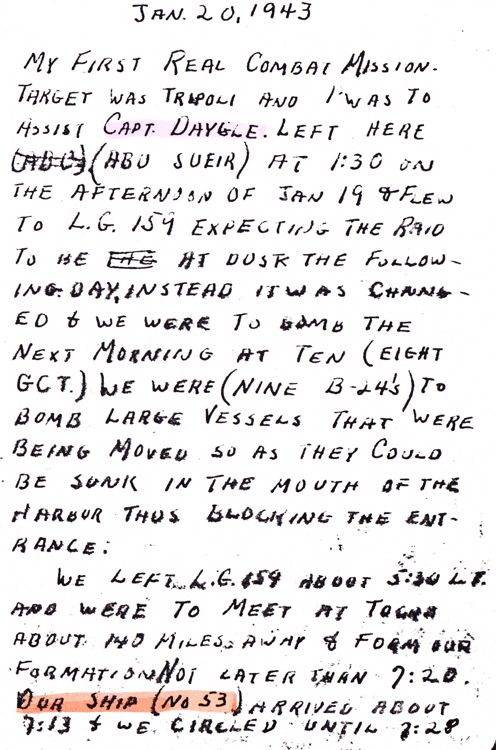 JAN. 20, 1943
MY FIRST REAL COMBAT MISSION.
TARGET WAS TRIPOLI AND I WAS TO
ASSIST CAPT. DAYGLE. LEFT HERE
(ABU SUEIR) AT 1:30 ON
THE AFTERNOON OF JAN 19 & FLEW
TO L.G. 159 EXPECTING THE RAID
TO BE AT DUSK THE FOLLOW-
ING DAY, INSTEAD IT WAS CHANG-
ED & WE WERE TO BOMB THE
NEXT MORNING AT TEN (EIGHT
GCT.) WE WERE (NINE B-24's) TO
BOMB LARGE VESSELS THAT WERE
BEING MOVED SO AS THEY COULD
BE SUNK IN THE MOUTH OF THE
HARBOR THUS BLOCKING THE ENT-
RANCE.
WE LEFT L.G. 159 ABOUT 5:30 L.T.
AND WERE TO MEET AT TOCRA
ABOUT 140 MILES AWAY & FORM OUR
FORMATION NOT LATER THAN 7:20.
OUR SHIP (NO 53) ARRIVED ABOUT
7:13 & WE CIRCLED UNTIL 7:28